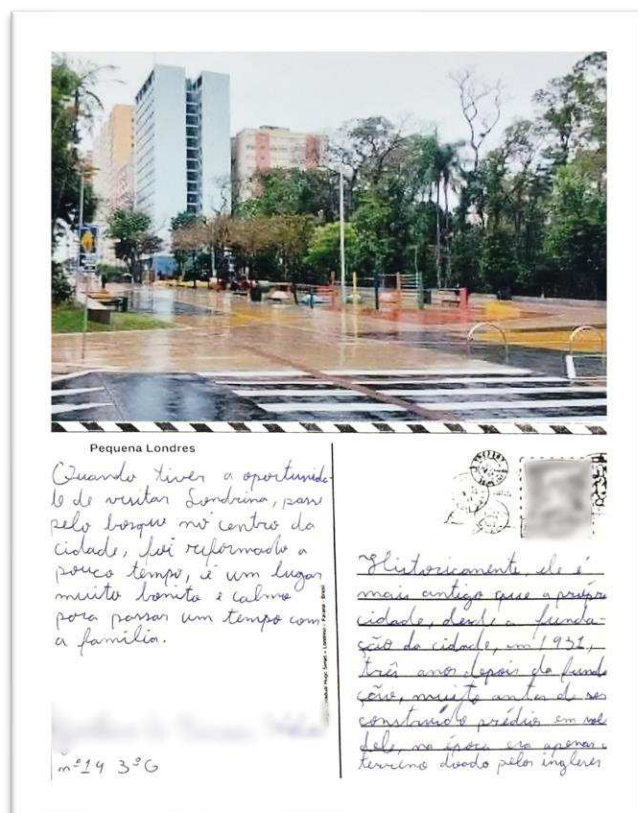 Pequena Londres
Quando tiver a oportunida
de de visitar Londrina, passe
pelo bosque no centro da
cidade, foi reformado a
pouco tempo, é um lugar
muito bonito e calmo
para passar um tempo com
a família.
nº14 3ºG
Historicamente, ele é
mais antigo que a própria
cidade, desde a funda-
ção da cidade, em 1931,
três anos depois da funda
ção, muito antes de ser
construído prédios em vol
dele, na época era apenas
terreno doado pelos ingleses